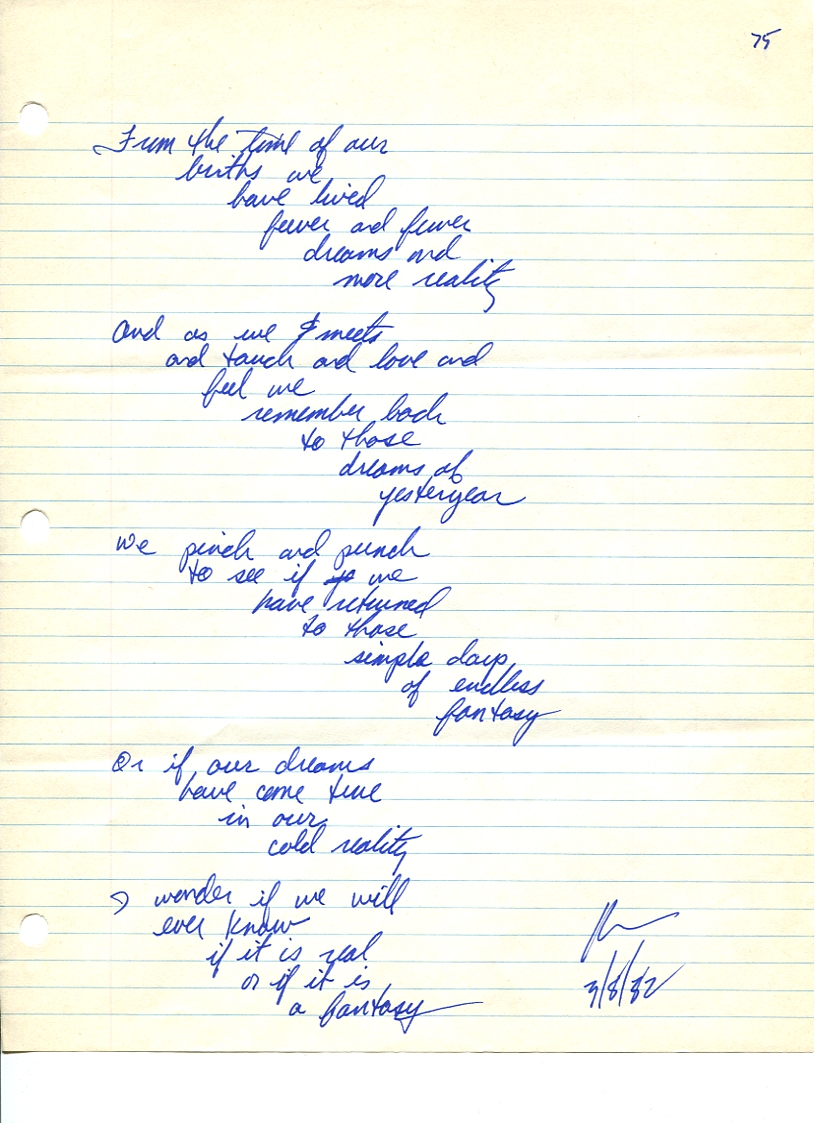 75
From the time of our
births we
have lived
fewer and fewer
dreams and
more reality
And as we meets
and touch and love and
feel we
remember back
to those
dreams of
yesteryear
We pinch and punch
to see if we
have returned
to those
simple days
of endless
fantasy
Or if our dreams
have come true
in our
cold reality
I wonder if we will
ever know
if it is real
or if it is
a fantasy
3/8/82